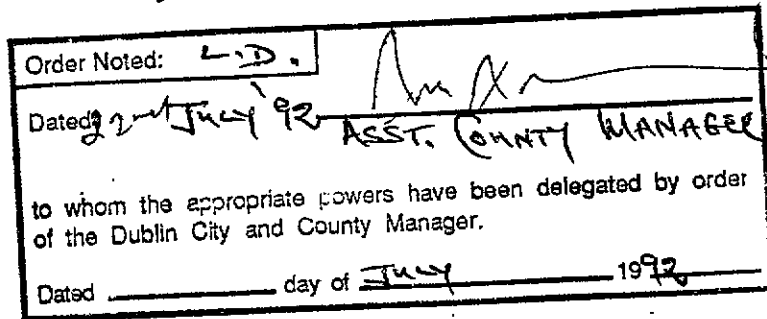 Order Noted: L.D.
Dated 22nd July '92
ASST. COUNTY MANAGER
to whom the appropriate powers have been delegated by order
of the Dublin City and County Manager.
Dated day of July 1992